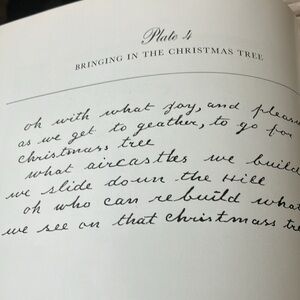 Plate 4
BRINGING IN THE CHRISTMAS TREE
oh with what joy, and pleasu
as we get to geather, to go for
christmass tree
what aircastles we build
we slide down the Hill
oh who can rebuild what
we see on that christmass tre